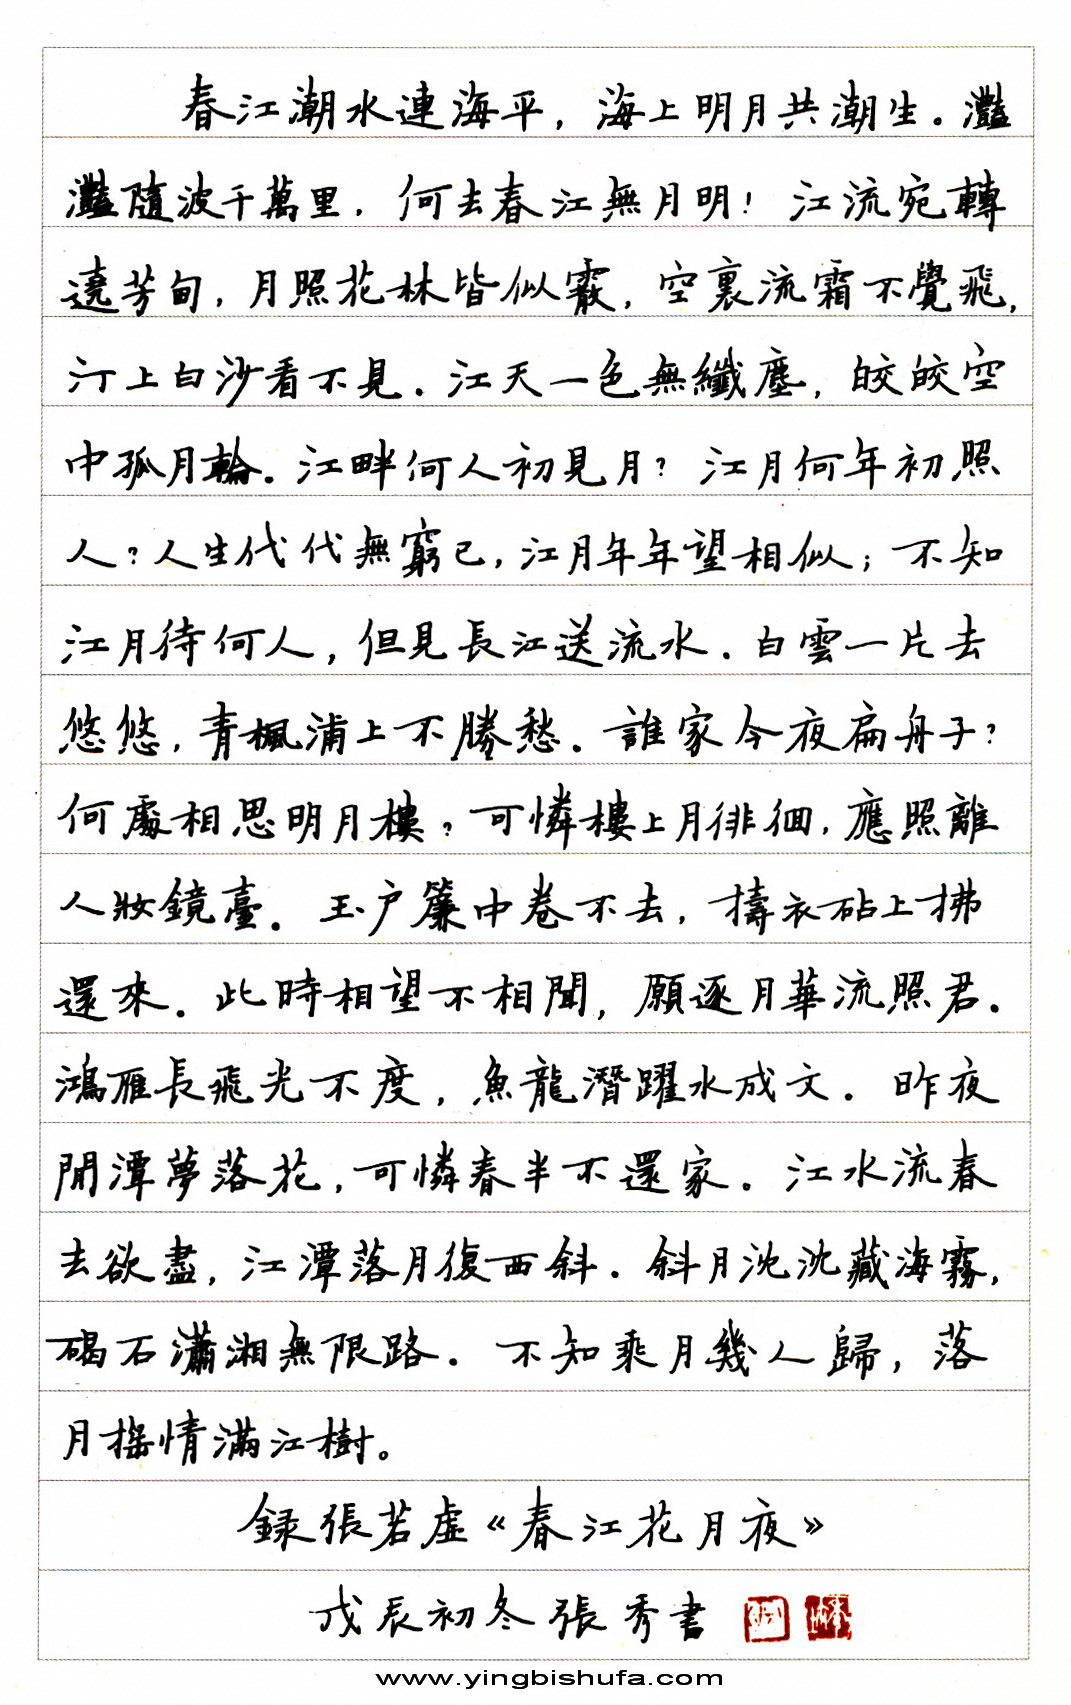 春江潮水連海平，海上明月共潮生。灩
灩隨波千萬里．何去春江無月明！江流宛轉
遶芳甸，月照花林皆似霰，空裏流霜不覺飛，
汀上白沙看不見．江天一色無纖塵，皎皎空
中孤月輪．江畔何人初見月？江月何年初照
人？人生代代無窮已，江月年年望相似；不知
江月待何人，但見長江送流水．白雲一片去
悠悠，青楓浦上不勝愁．誰家今夜扁舟子？
何處相思明月樓？可憐樓上月徘徊，應照離
人妝鏡臺．玉户簾中卷不去，擣衣砧上拂
還來．此時相望不相聞，願逐月華流照君．
鴻雁長飛光不度，魚龍潛躍水成文．昨夜
閒潭夢落花，可憐春半不還家．江水流春
去欲盡，江潭落月復西斜．斜月沈沈藏海霧，
碣石瀟湘無限路．不知乘月幾人歸，落
月搖情滿江樹。
録張若虛《春江花月夜》
戊辰初冬張秀書
www.yingbishufa.com